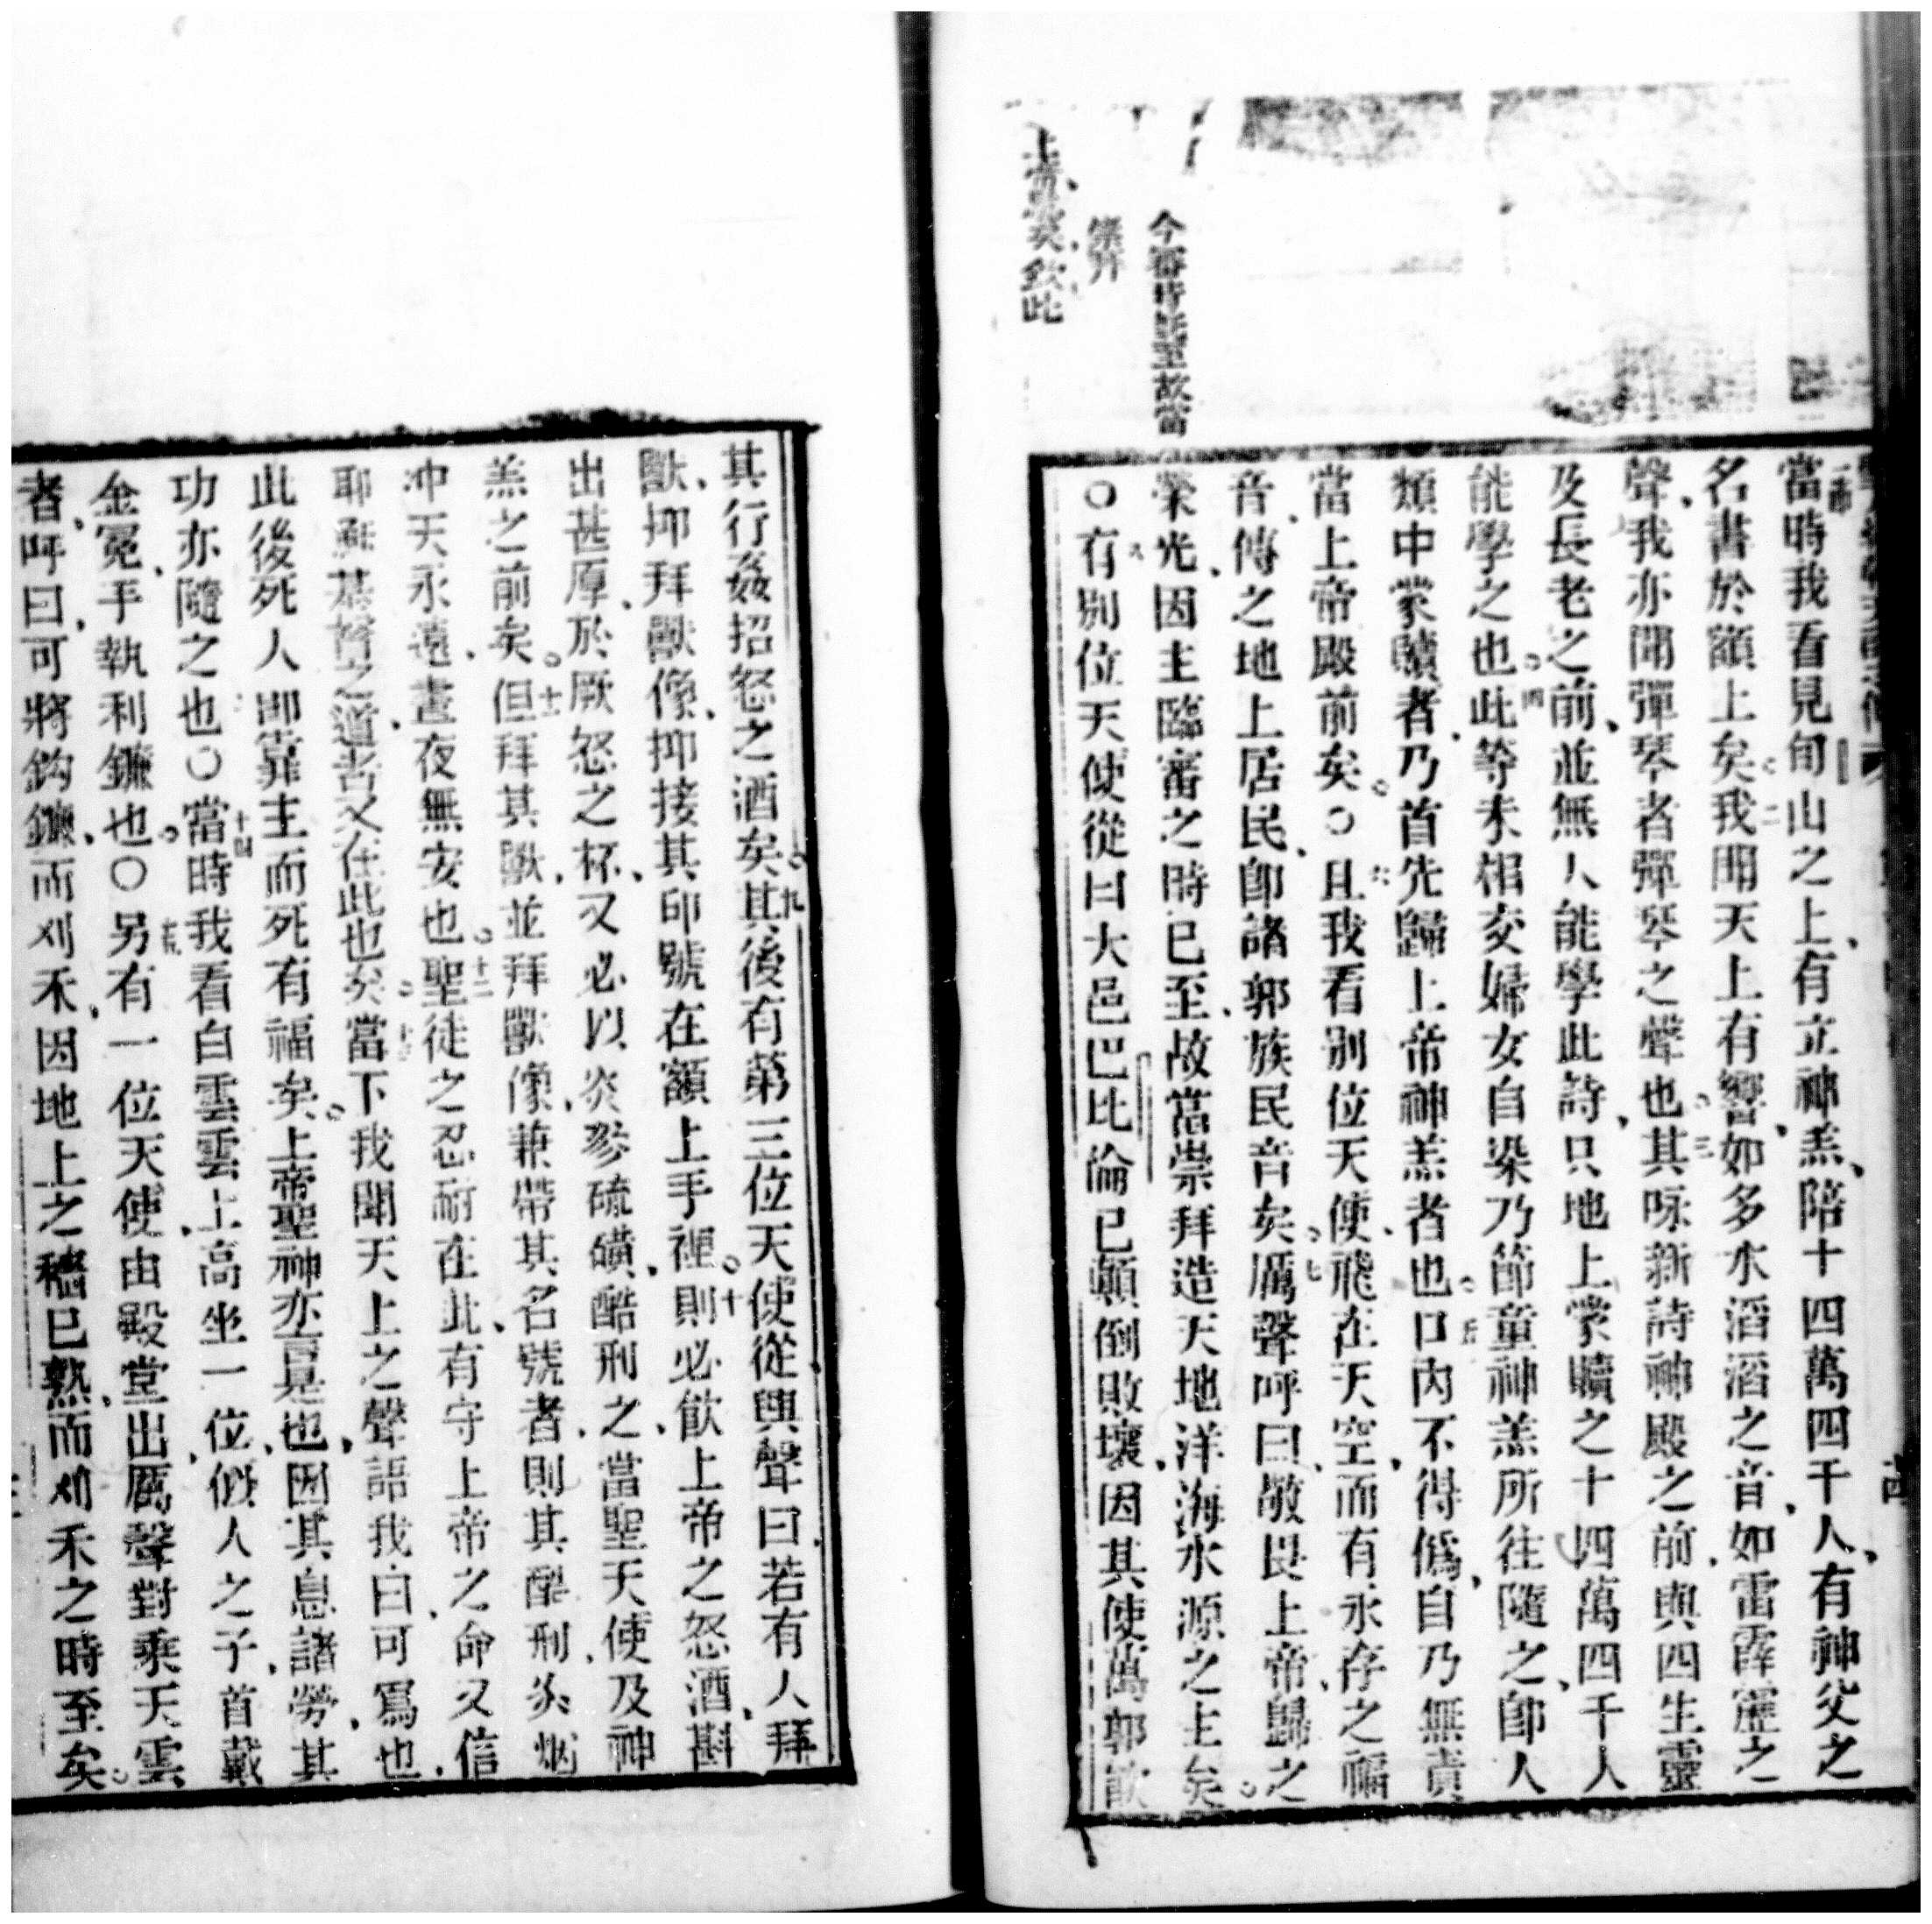 今審皆既至故當
崇拜
上帝
矣欽此
當時我看見旬山之上有立神羔陪十四萬四千人有神父之
名書於額上矣我聞天上有響如多水滔滔之音如雷霹靂之
聲我亦聞彈琴者彈琴之聲也其咏新詩神殿之前與四生靈
及長老之前並無人能學此詩只地上蒙贖之十四萬四千人
能學之也此等未相交婦女自染乃節童神羔所往隨之卽人
類中蒙贖者乃首先歸上帝神羔者也口內不得僞自乃無責
當上帝殿前矣〇且我看別位天使飛在天空而有永存之福
音傳之地上居民卽諸郭族民音矣厲聲呼曰敬畏上帝歸之
榮光因主臨審之時已至故當崇拜造天地洋海水源之主矣
〇有別位天使從曰大邑巴比倫已顛倒敗壞因其使萬郭飮
其行姦招怒之酒矣其後有第三位天使從與聲曰若有人拜
獸抑拜獸像抑接其印號在額上手裡則必飮上帝之怒酒斟
出甚厚於厥怒之杯又必以炎參硫磺酷刑之當聖天使及神
羔之前矣但拜其獸並拜獸像兼帶其名號者則其酷刑炎烟
冲天永遠晝夜無安也聖徒之忍耐在此有守上帝之命又信
耶穌基督之道者又在此也矣當下我聞天上之聲語我曰可寫也
此後死人卽靠主而死有福矣上帝聖神亦言是也因其息諸勞其
功亦隨之也〇當時我看白雲雲上高坐一位似人之子首戴
金冕手執利鐮也〇另有一位天使由殿堂出厲聲對乘天雲
者呼曰可將鈎鐮而刈禾因地上之穡已熟而刈禾之時至矣